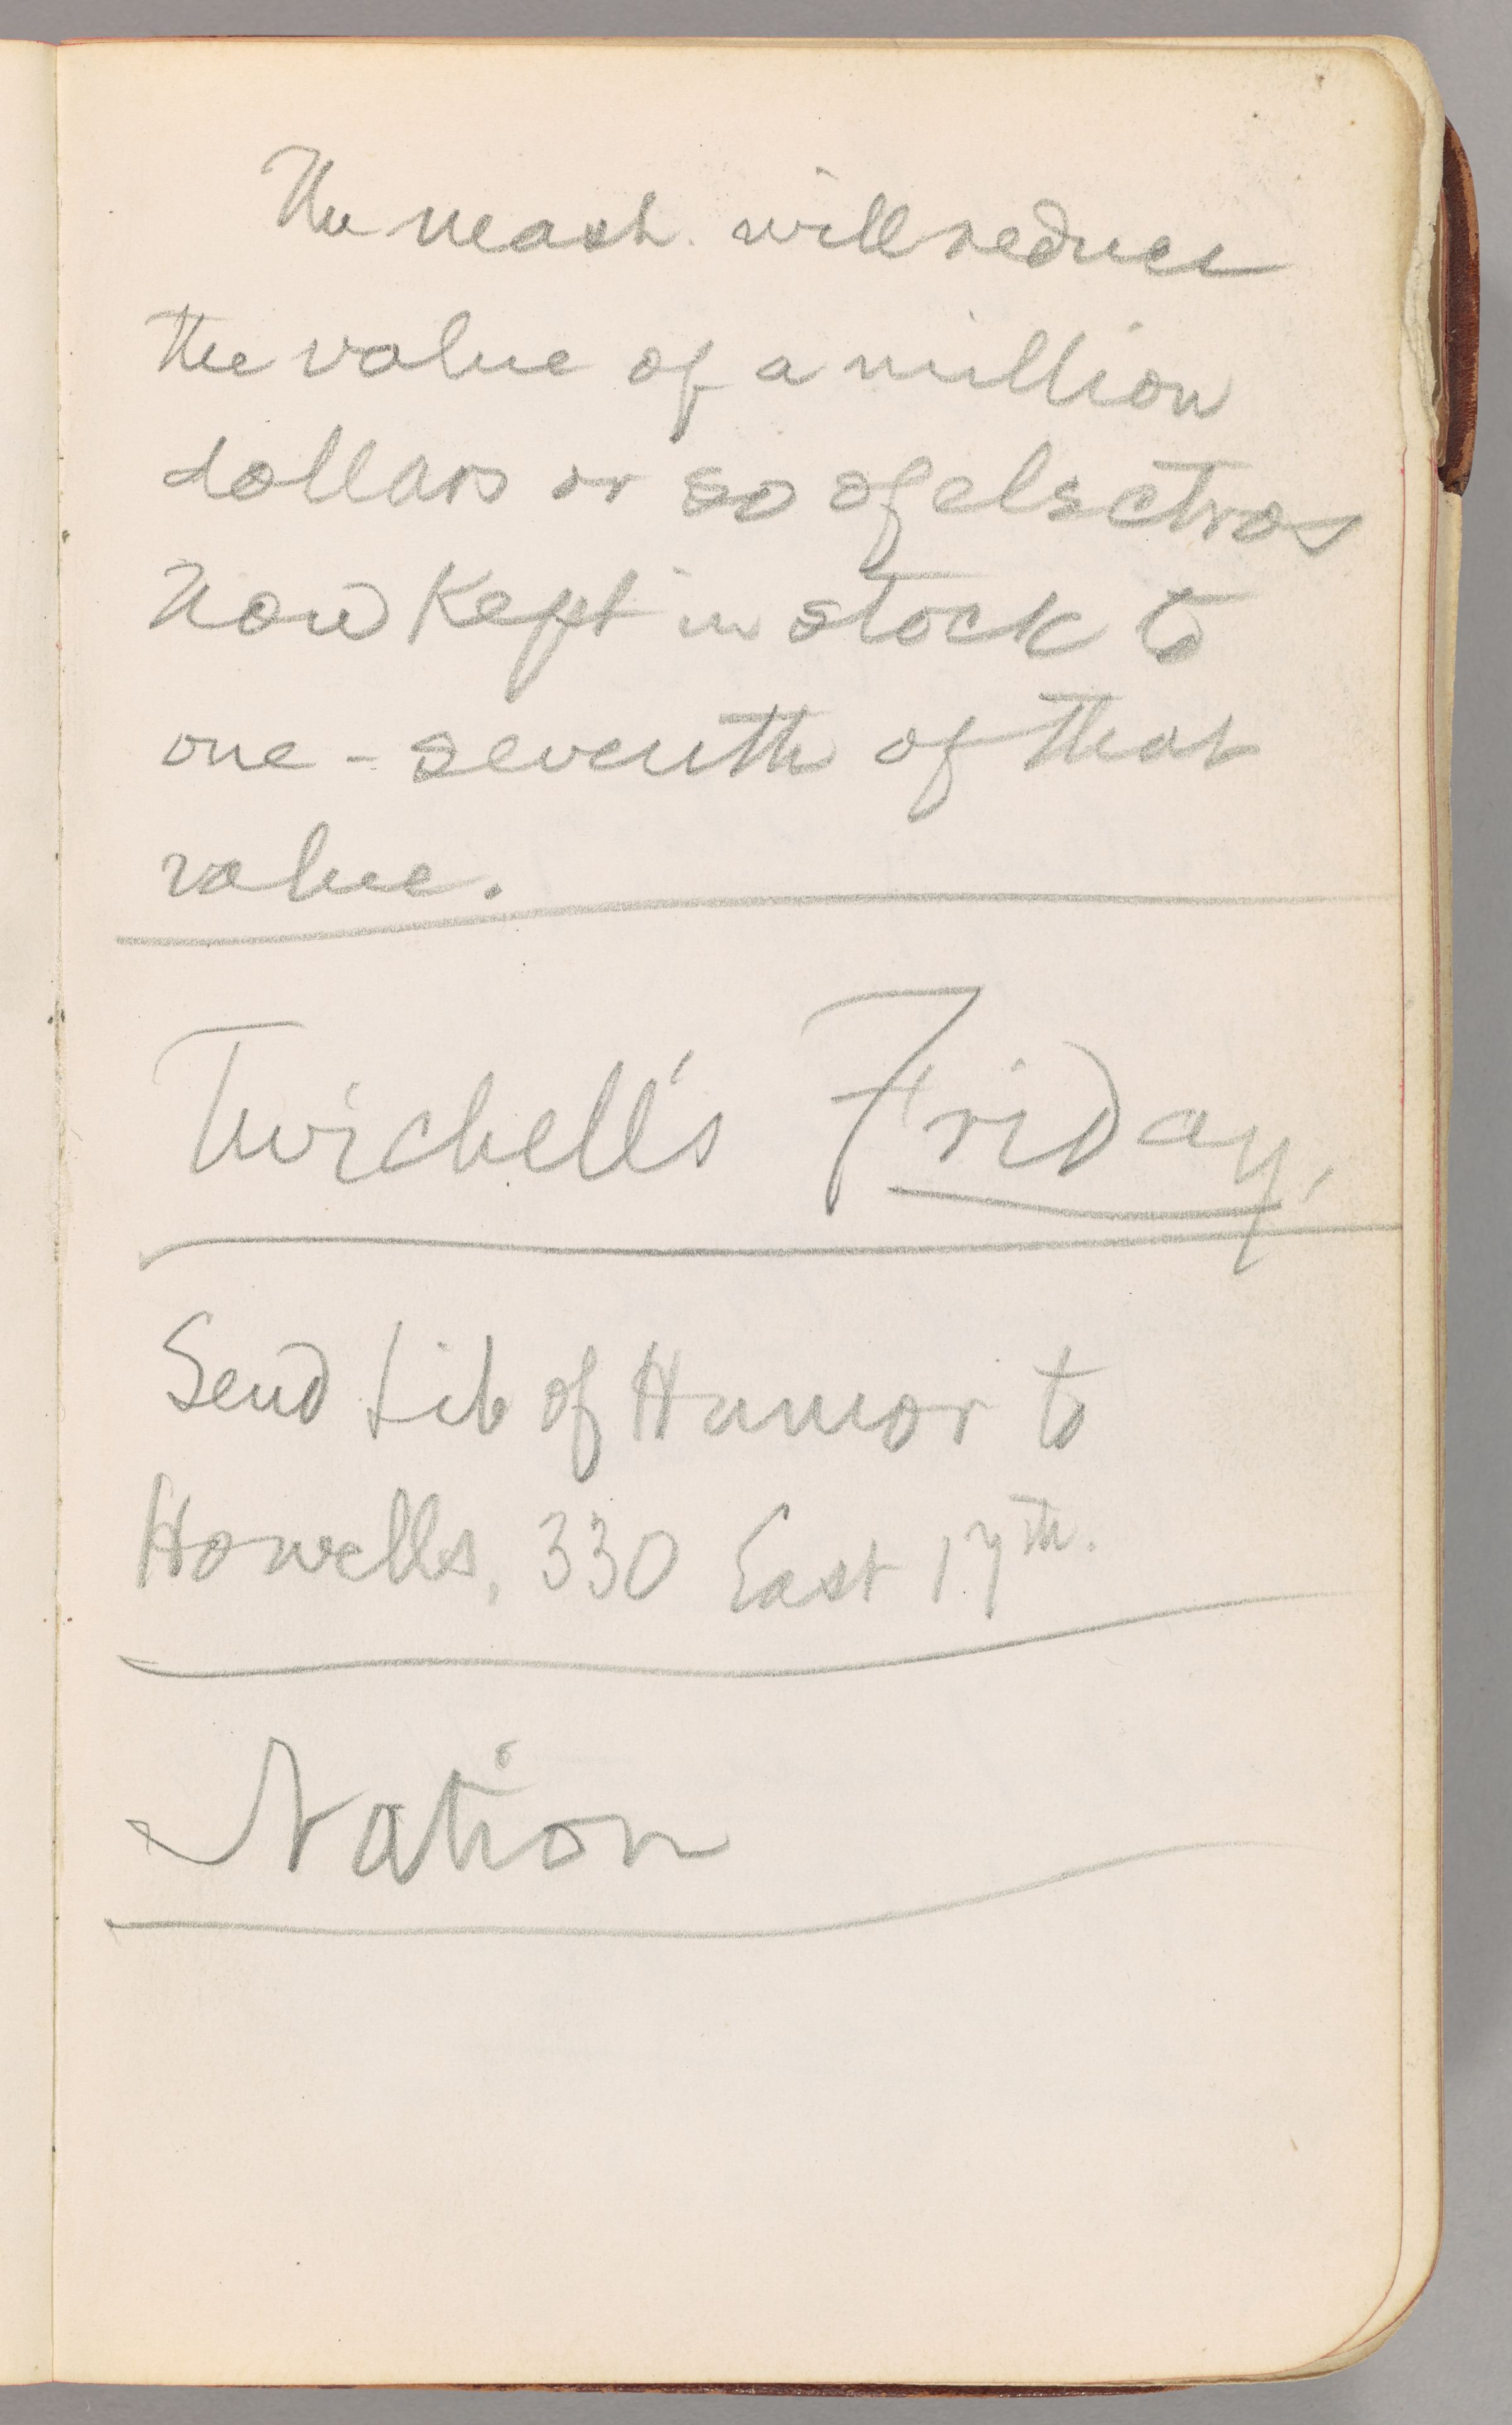 The mach. will reduce
the value of a million
dollars or so of electros
now kept in stock to
one-seventh of that
value.
Twichell's Friday.
Send Lib of Humor to
Howells, 330 East 17th.
Nation